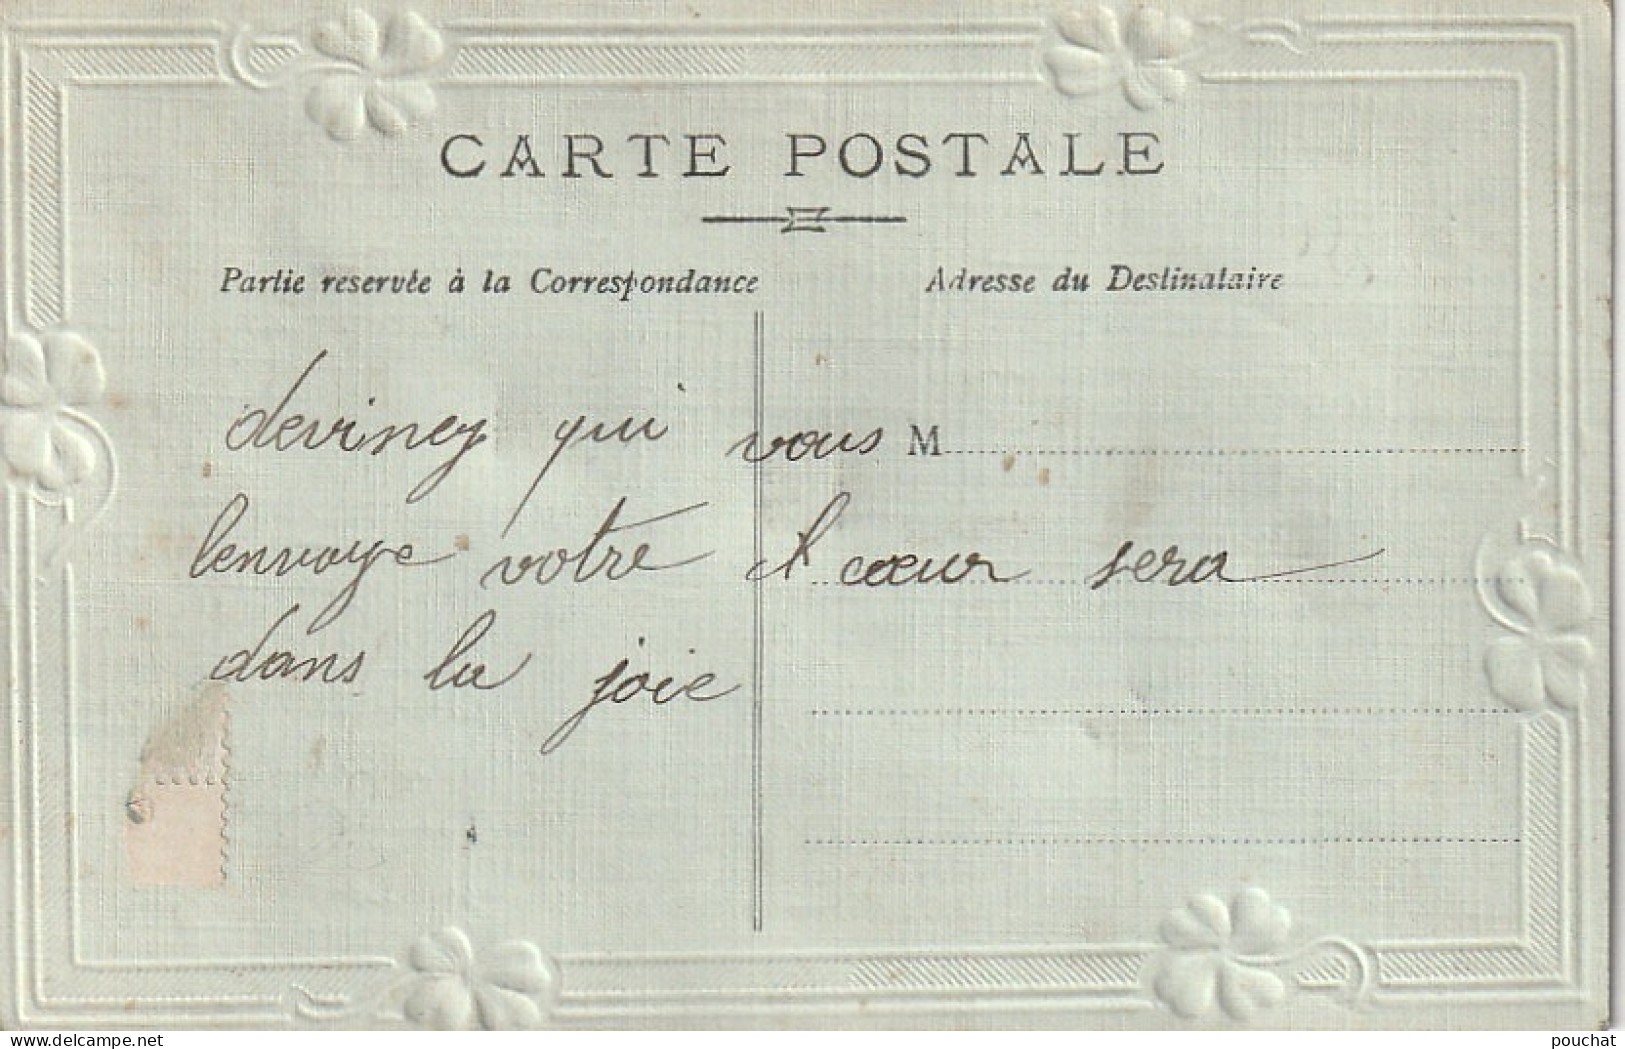 CARTE POSTALE
Partie reservée à la Correspondance
Adresse du Destinataire
devinez qui vous M
lenvoye votre cœur sera
dans la joie
delcampe.net
pouchat